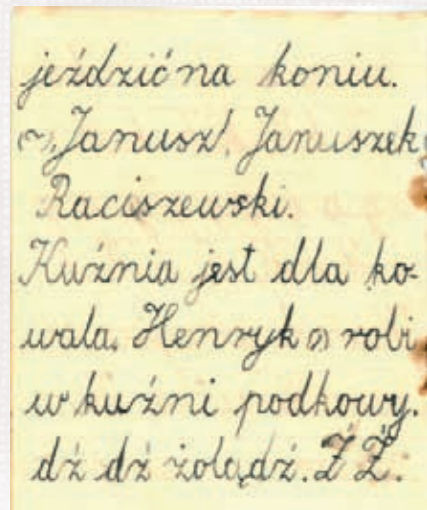 jeździć na koniu.
Janusz, Januszek
Raciszewski.
Kuźnia jest dla ko-
wala. Henryk robi
w kuźni podkowy.
dź dź żolądź. Ź Ź.